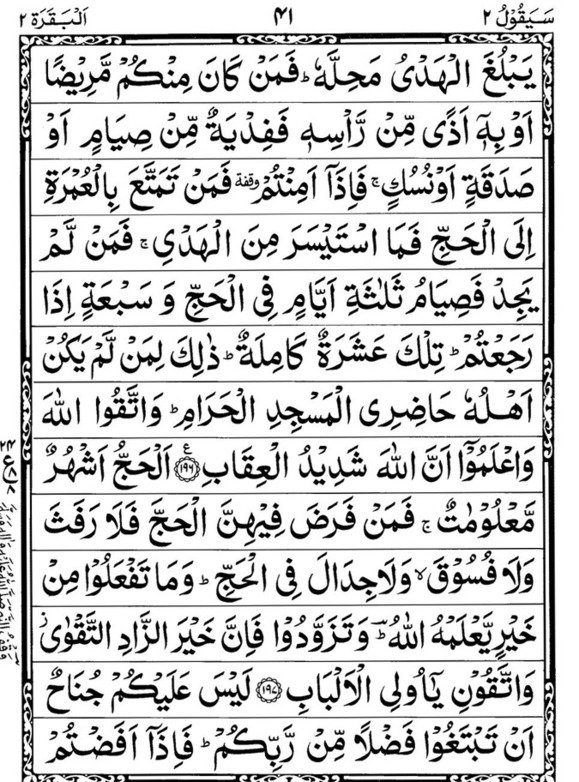 سَيَقُوْلُ ٢ ٤١ اَلْبَقَرَة ٢
يَبْلُغَ الْهَدْىُ مَحِلَّهٗ ؕ فَمَنْ كَانَ مِنْكُمْ مَّرِيْضًا
اَوْ بِهٖۤ اَذًى مِّنْ رَّاْسِهٖ فَفِدْيَةٌ مِّنْ صِيَامٍ اَوْ
صَدَقَةٍ اَوْ نُسُكٍ ۚ فَاِذَاۤ اَمِنْتُمْ وقفة فَمَنْ تَمَتَّعَ بِالْعُمْرَةِ
اِلَى الْحَجِّ فَمَا اسْتَيْسَرَ مِنَ الْهَدْىِ ۚ فَمَنْ لَّمْ
يَجِدْ فَصِيَامُ ثَلٰثَةِ اَيَّامٍ فِى الْحَجِّ وَ سَبْعَةٍ اِذَا
رَجَعْتُمْ ؕ تِلْكَ عَشَرَةٌ كَامِلَةٌ ؕ ذٰلِكَ لِمَنْ لَّمْ يَكُنْ
اَهْلُهٗ حَاضِرِى الْمَسْجِدِ الْحَرَامِ ؕ وَاتَّقُوا اللّٰهَ
وَاعْلَمُوْۤا اَنَّ اللّٰهَ شَدِيْدُ الْعِقَابِ ﴿١٩٦﴾ ع اَلْحَجُّ اَشْهُرٌ
مَّعْلُوْمٰتٌ ۚ فَمَنْ فَرَضَ فِيْهِنَّ الْحَجَّ فَلَا رَفَثَ
وَلَا فُسُوْقَ ۙ وَلَا جِدَالَ فِى الْحَجِّ ؕ وَمَا تَفْعَلُوْا مِنْ
خَيْرٍ يَّعْلَمْهُ اللّٰهُ ؕ وَتَزَوَّدُوْا فَاِنَّ خَيْرَ الزَّادِ التَّقْوٰى ز
وَاتَّقُوْنِ يٰۤاُولِى الْاَلْبَابِ ﴿١٩٧﴾ لَيْسَ عَلَيْكُمْ جُنَاحٌ
اَنْ تَبْتَغُوْا فَضْلًا مِّنْ رَّبِّكُمْ ؕ فَاِذَاۤ اَفَضْتُمْ
٢٤
ع
٨